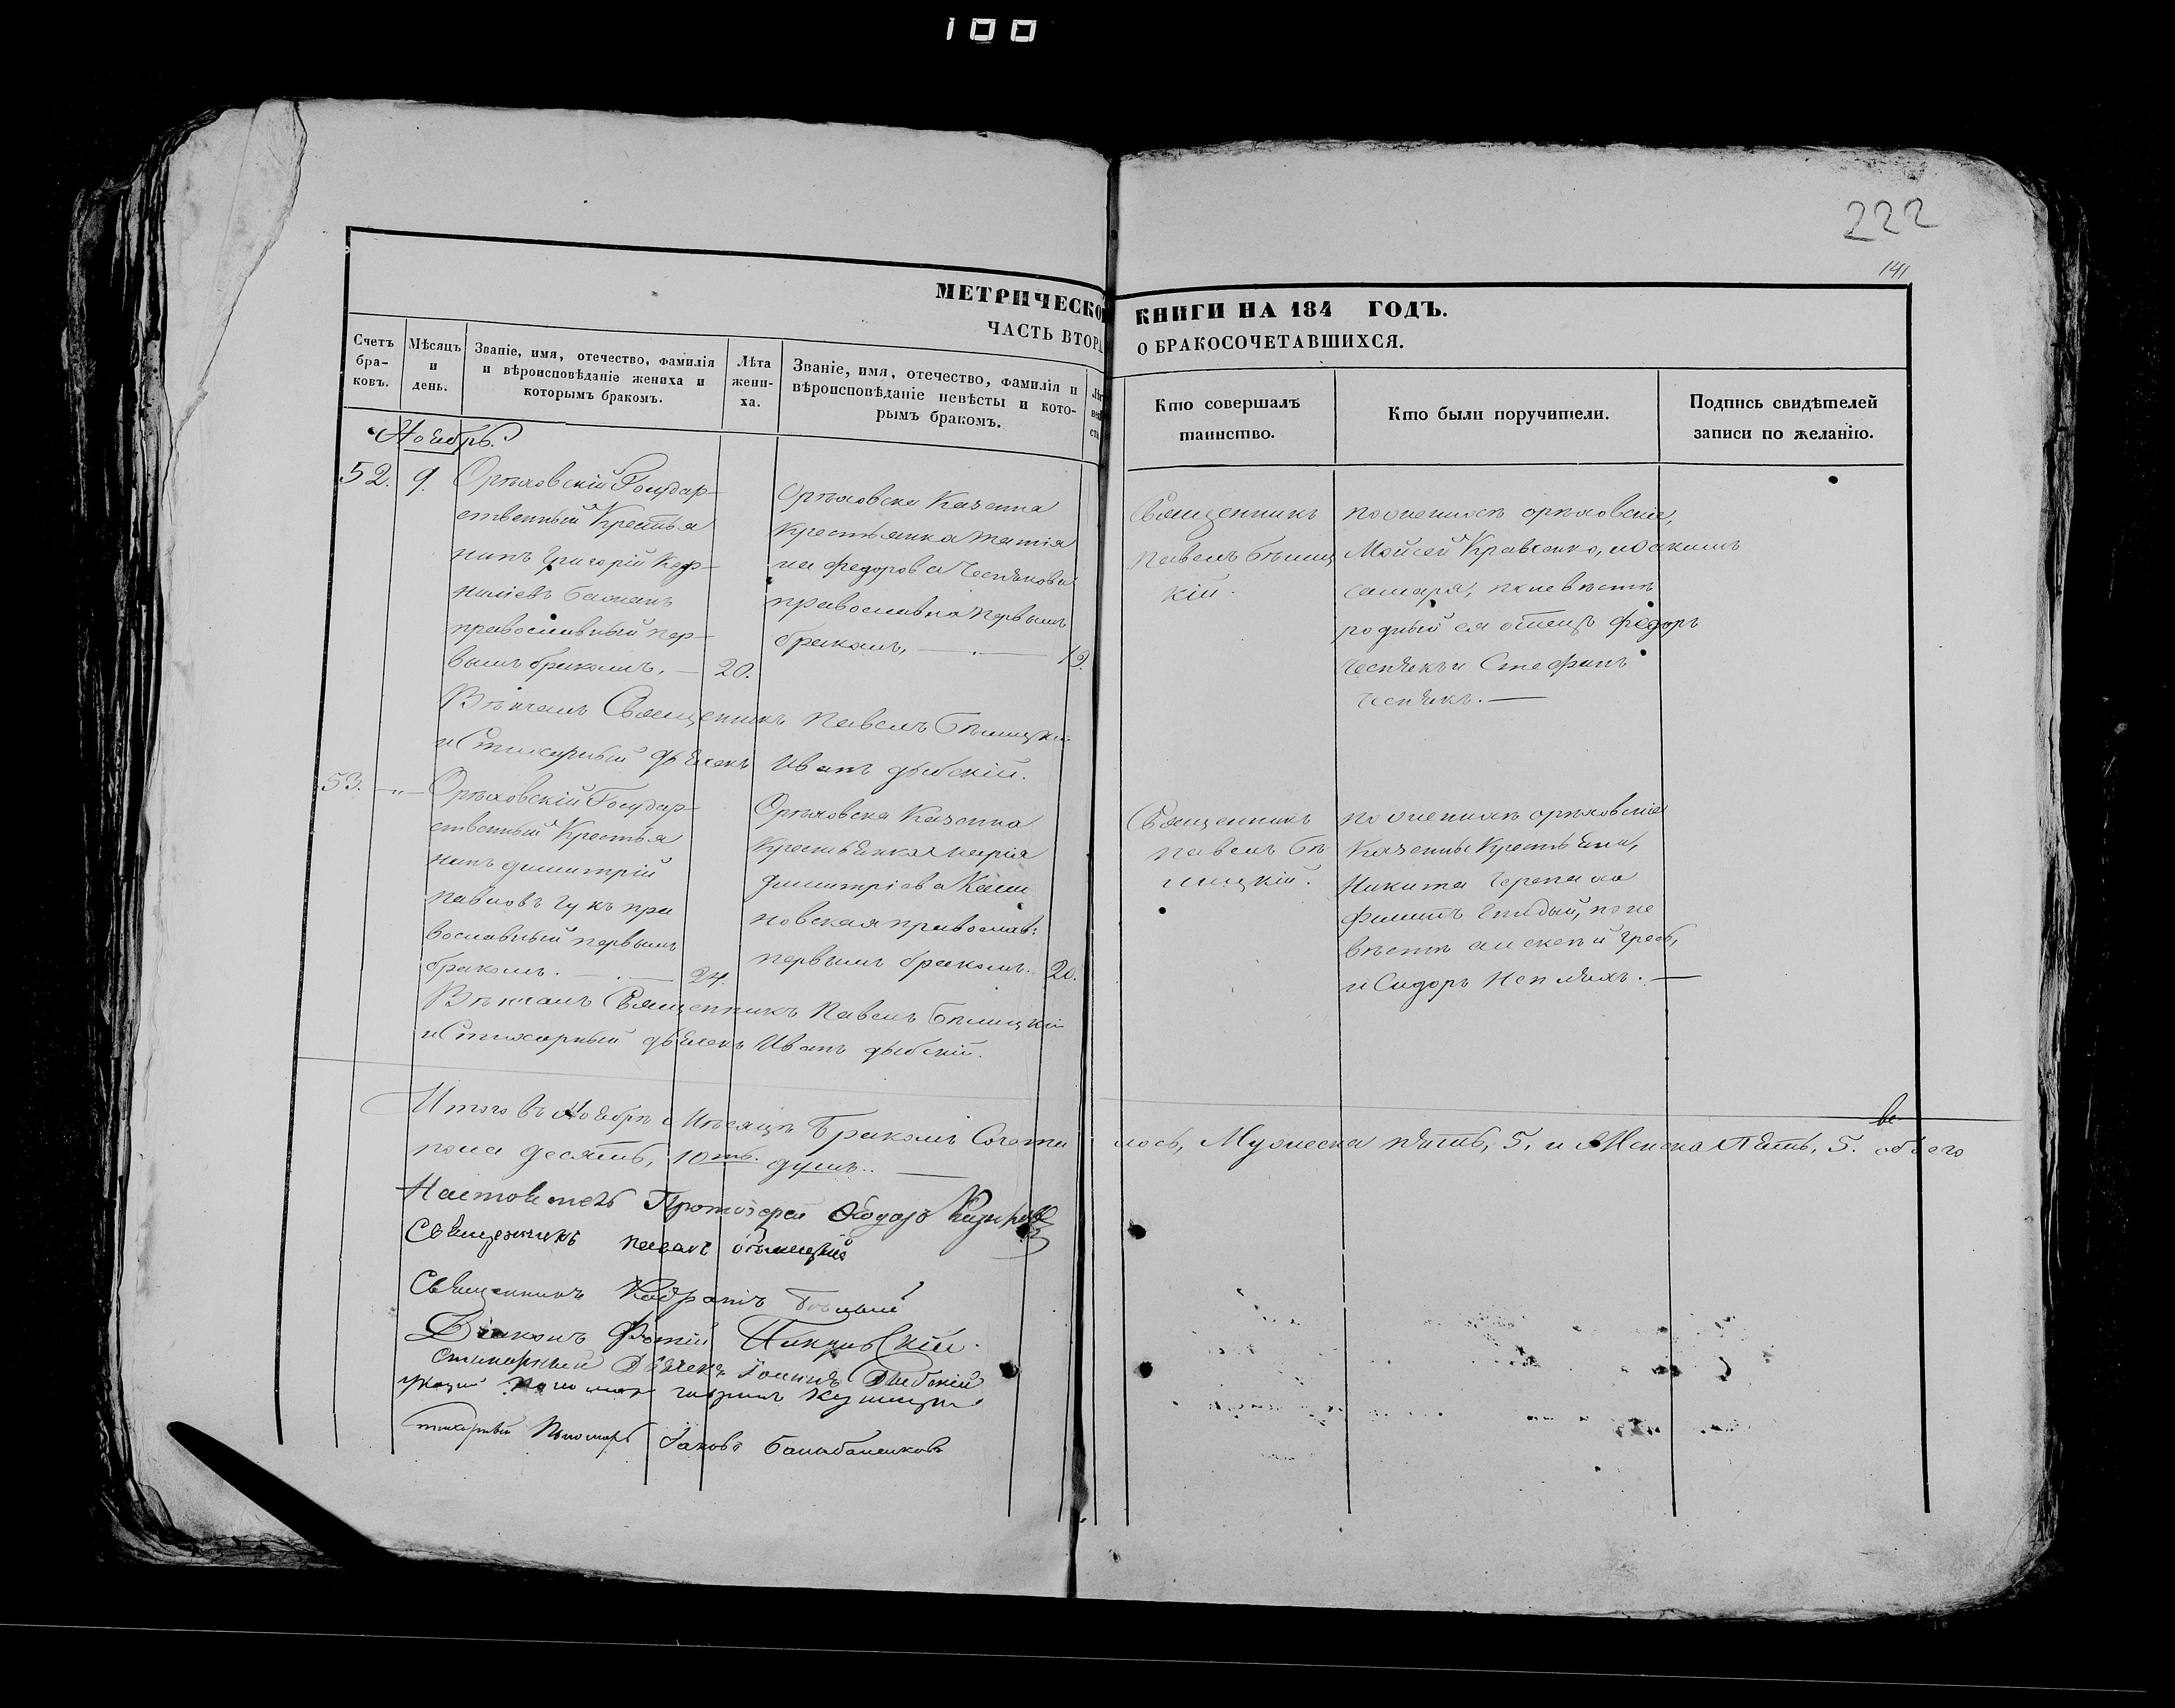 100
222
141
МЕТРИЧЕСКОЙ КНИГИ НА 184 ГОДЪ.
ЧАСТЬ ВТОРА О БРАКОСОЧЕТАВШИХСЯ.
Счетъ бра-ковъ.
Мѣсяцъ и день.
Званіе, имя, отечество, фамилія и вѣроисповѣданіе жениха и которымъ бракомъ.
Лѣта жени-ха.
Званіе, имя, отечество, фамилія и вѣроисповѣданіе невѣсты и кото-рымъ бракомъ.
Кто совершалъ таинство.
Кто были поручители.
Подпись свидѣтелей записи по желанію.
Ноябрь.
52. 9.
Орѣховскій Государ-
ственный Крестья
нинъ Григорій Кор-
нилiевъ Бажанъ
православный пер-
вымъ бракомъ. — 20.
Орѣховска Казенна
Крестьянка Татія
на Федорова Чеснѣкова
православна первымъ
бракомъ, — 19.
Священникъ
Павелъ Бѣлиц
кій.
по женихѣ орѣховскіе,
Мойсей Кравченко, и Оакимъ
самаря, по невѣстѣ
родный ея отецъ Федоръ
Чеснѣкъ и Стефанъ
Чеснѣкъ. —
Вѣнчалъ Священникъ Павелъ Бѣлицкій
и Стихарный дьячекъ Иванъ
53. — „ —
Орѣховскій Государ-
ственный Крестья
нинъ Димитрій
Павловъ Гукъ пра
вославный первымъ
бракомъ. — 24.
Орѣховска Казенна
Крестьянка Марія
Димитріева Кали
новская православ:
первымъ бракомъ. 20.
Священникъ
Павелъ Бѣ
лицкій.
по женихѣ орѣховскіе
Казенные Крестьяне,
Никита Черепаха
Филиппъ по не
вѣстѣ алексѣй
и Сидоръ —
Вѣнчалъ Священникъ Павелъ Бѣлицкій
и Стихарный дьячекъ Иванъ
Итого въ Ноябрѣ Мѣсяцѣ Бракомъ Сочета
лось, Мужеска пять, 5. и Женска Пять, 5. обоего
пола десять, 10ть. душъ. —
Настоятель Протоіерей Ѳеодоръ
Священникъ Павелъ Бѣлицкій
Священникъ Кодратъ
Діаконъ Фотій
Стихарный Дьячекъ Іоаннъ
Пономарь Гавріилъ
Стихарный Пономарь Іаковъ Балабаненковъ